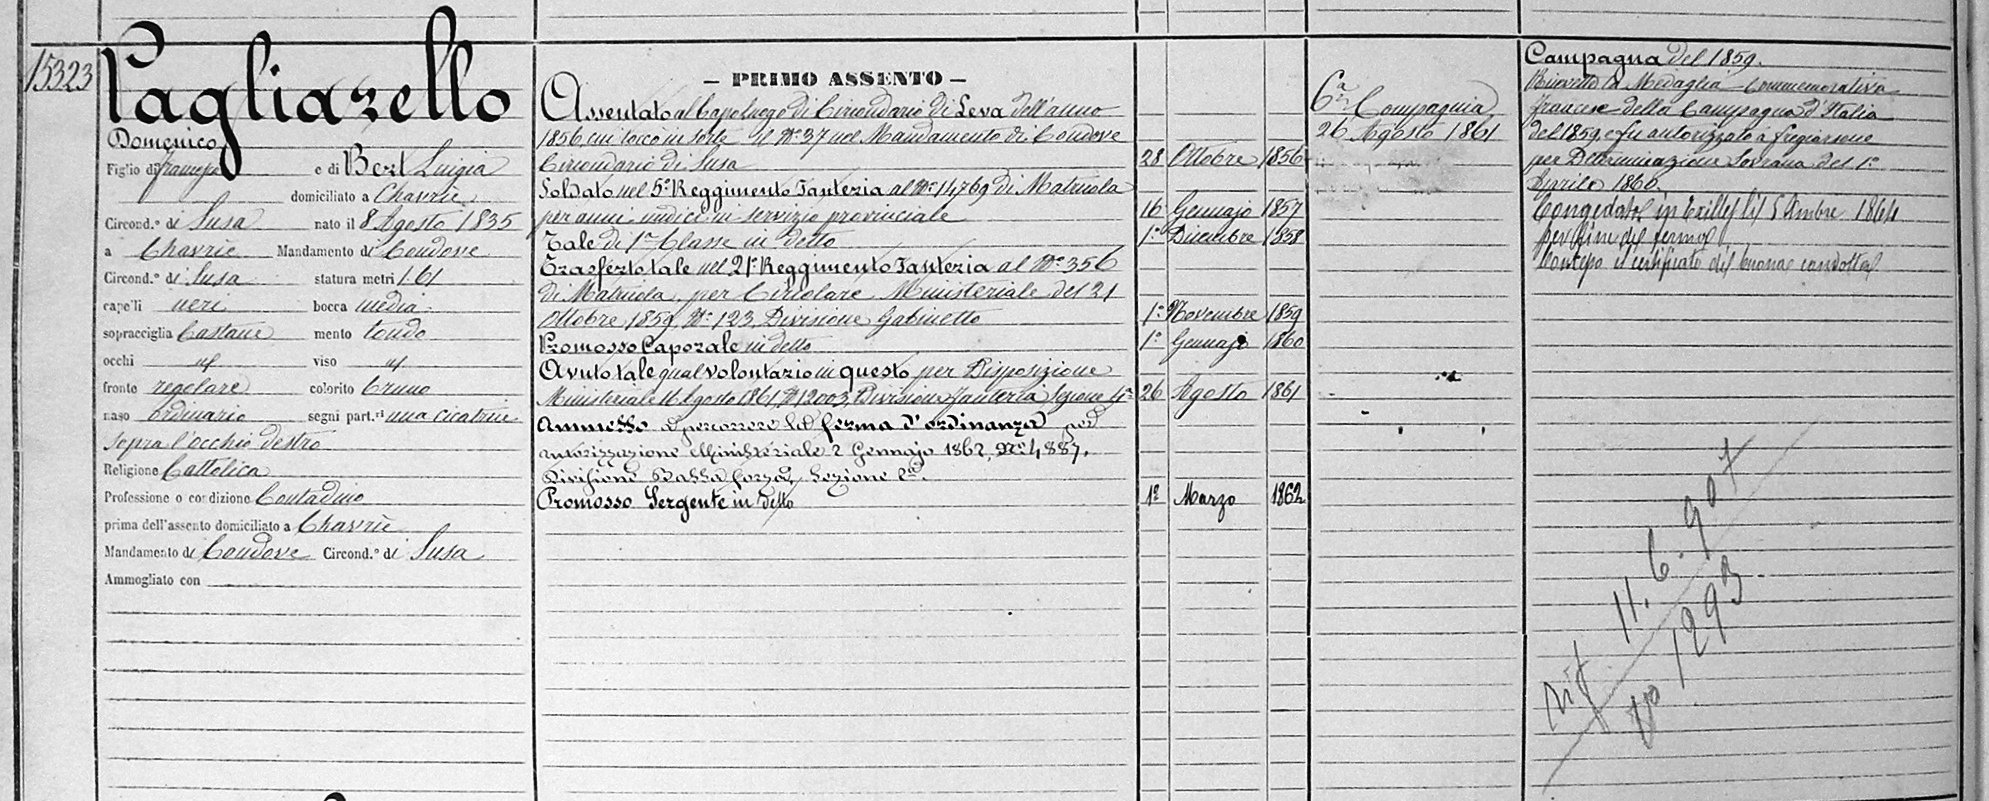 15323
Pagliazello
Domenico
Figlio di e di Bert Luigia
domiciliato a Chavrie
Circond.º di Susa nato il 8 Agosto 1835
a Chavrie Mandamento di Condove
Circond.º di Susa statura metri 1.61
capelli neri bocca media
sopracciglia Castane mento tondo
occhi id viso id
fronte regolare colorito bruno
naso ordinario segni part.ri una cicatrice
sopra l'occhio destro
Religione Cattolica
Professione o condizione Contadino
prima dell'assento domiciliato a Chavrie
Mandamento di Condove Circond.º di Susa
Ammogliato con
— PRIMO ASSENTO —
Assentato al Capoluogo di Circondario di Leva dell'anno
1856, cui toccò in sorte il Nº 37 nel Mandamento di Condove
Circondario di Susa 28 Ottobre 1856
Soldato nel 5º Reggimento Fanteria al Nº 14769 di Matricola
per anni undici in servizio provinciale 16 Gennajo 1857
Tale di 1ª Classe in detto 1º Dicembre 1858
Trasferto tale nel 21º Reggimento Fanteria al Nº 356
di Matricola, per Circolare Ministeriale del 21
Ottobre 1859, Nº 123, Divisione Gabinetto 1º Novembre 1859
Promosso Caporale in detto 1º Gennajo 1860
Avuto tale qual volontario in questo per Disposizione
Ministeriale 16 Agosto 1861, Nº 12003, Divisione Fanteria, Sezione 4ª 26 Agosto 1861
Ammesso a percorrere la ferma d'ordinanza per
autorizzazione Ministeriale 2 Gennajo 1862, Nº 4887,
Divisione Bassa forza, Sezione
Promosso Sergente in detto 1º Marzo 1862
6ª Compagnia
26 Agosto 1861
Campagna del 1859.
Ricevuto la Medaglia Commemorativa
francese della Campagna d'Italia
del 1859 e fu autorizzato a fregiarsene
per Determinazione Sovrana del 1º
Aprile 1860.
Congedato in Exilles li 5 Xmbre 1864
per fine di ferma
Concesso il certificato di buona condotta
11. 6. 907
Nº 1293